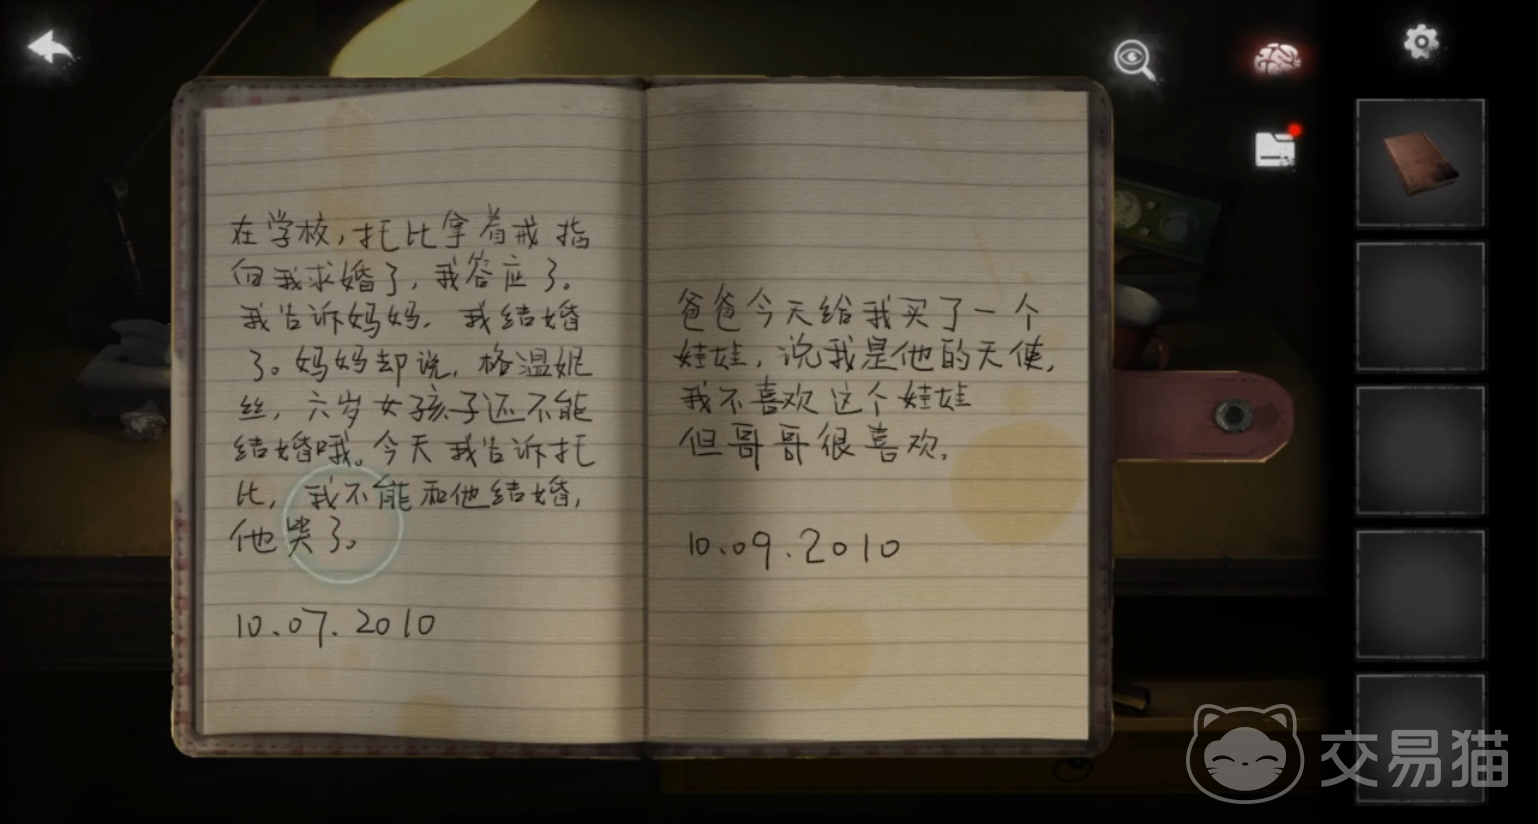 在学校，托比拿着戒指
向我求婚了，我答应了。
我告诉妈妈，我结婚
了。妈妈却说，格温妮
丝，六岁女孩子还不能
结婚哦。今天我告诉托
比，我不能和他结婚，
他哭了。
10.07.2010
爸爸今天给我买了一个
娃娃，说我是他的天使，
我不喜欢这个娃娃
但哥哥很喜欢。
10.09.2010
交易猫